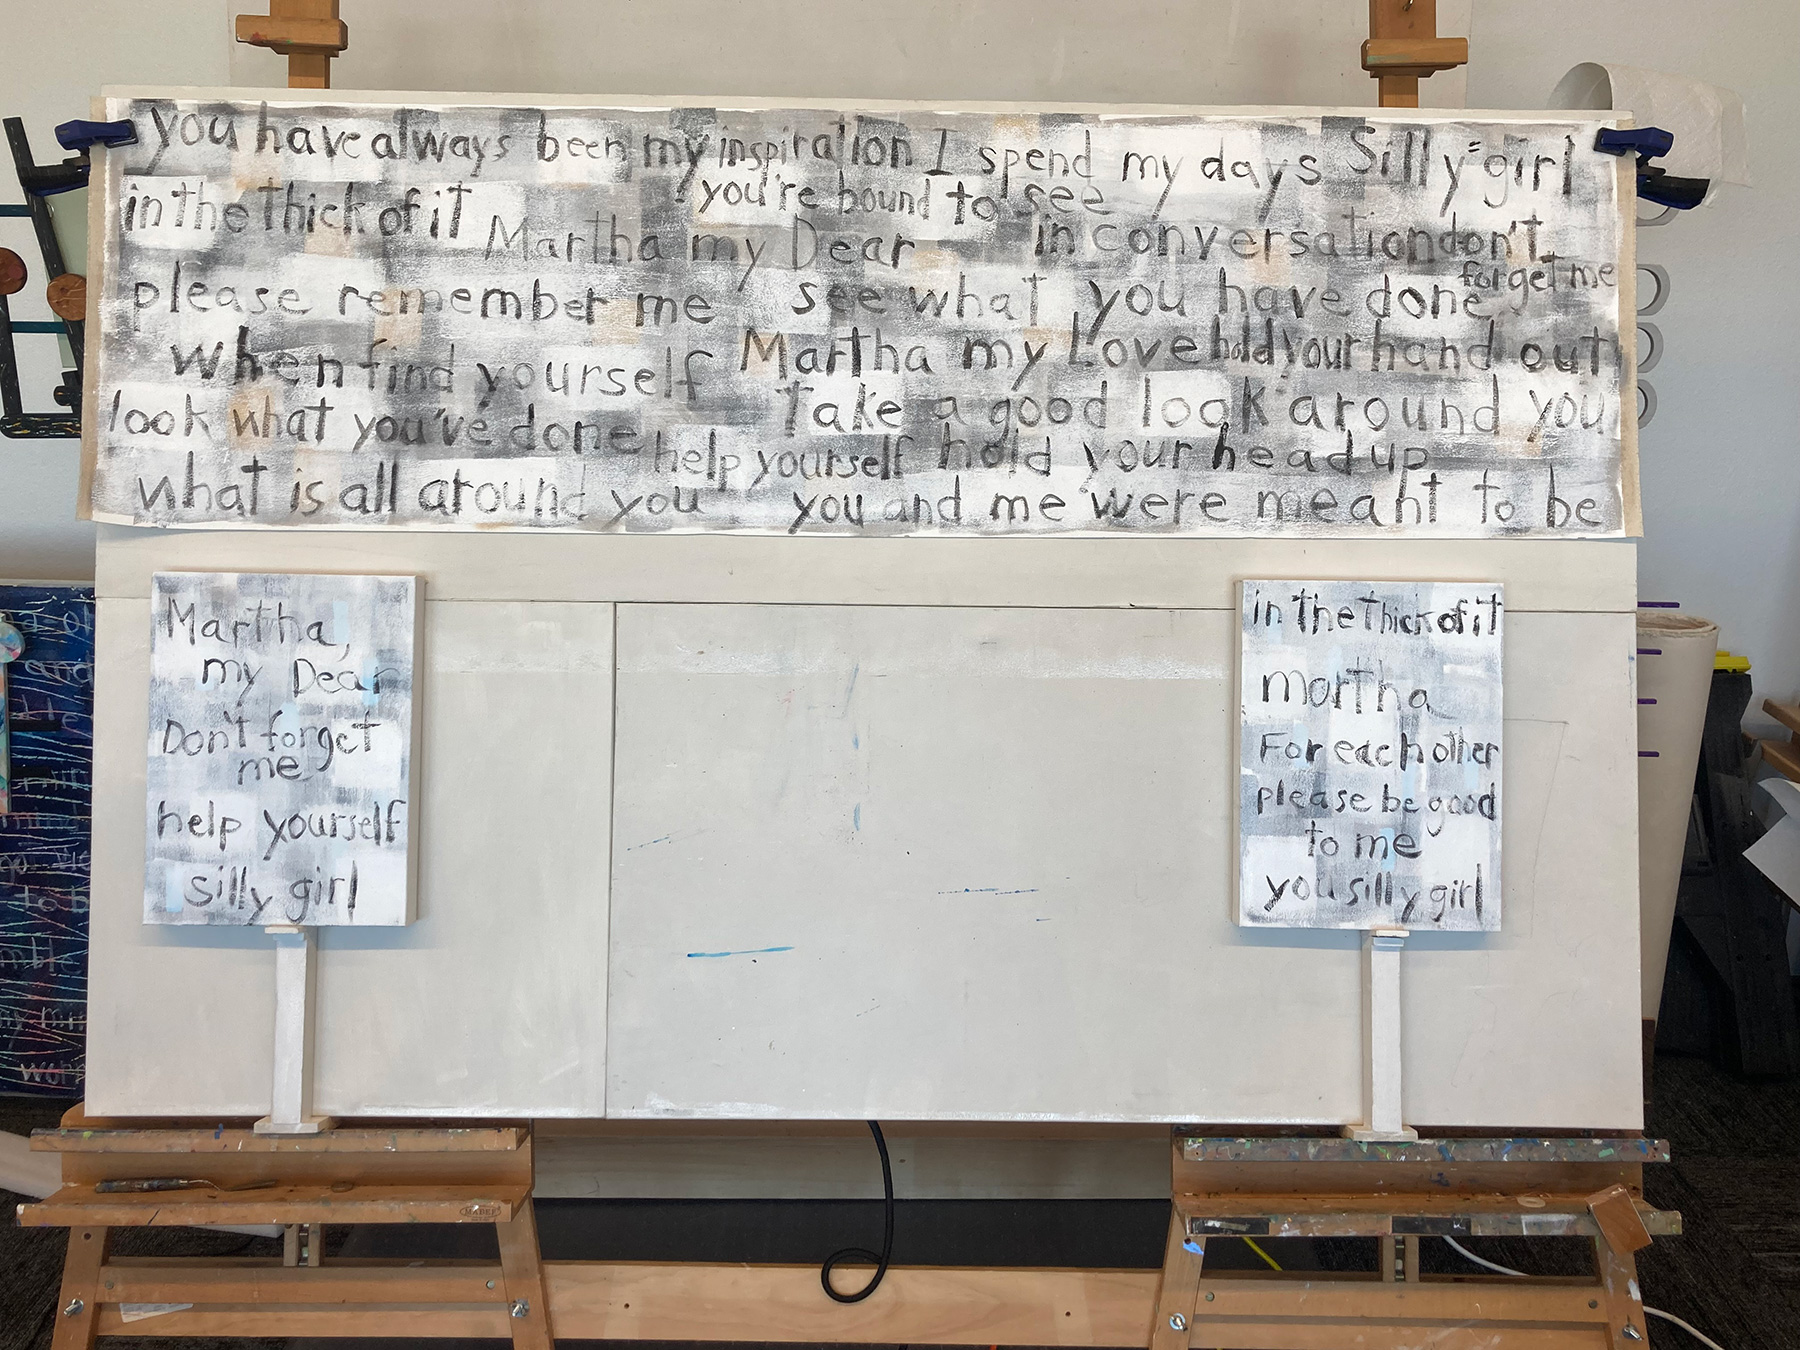 you have always been my inspiration I spend my days Silly girl
in the thick of it you're bound to see
Martha my Dear in conversation don't
forget me
please remember me see what you have done
when find yourself Martha my Love hold your hand out
look what you've done Take a good look around you
help yourself hold your head up
what is all around you you and me were meant to be
Martha,
my Dear
Don't forget
me
help yourself
silly girl
in the thick of it
martha
For each other
please be good
to me
you silly girl
and
to b
my
MABEF